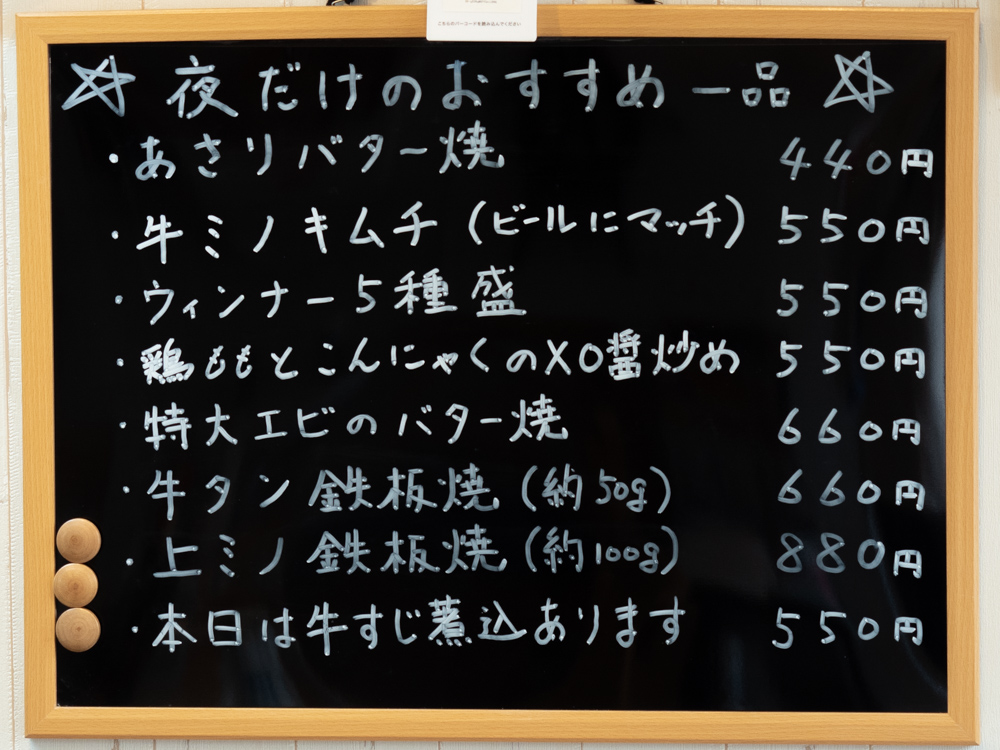 こちらのバーコードを読み込んでください
☆ 夜だけのおすすめ一品 ☆
・あさりバター焼 440円
・牛ミノキムチ (ビールにマッチ) 550円
・ウィンナー5種盛 550円
・鶏ももとこんにゃくのXO醤炒め 550円
・特大エビのバター焼 660円
・牛タン鉄板焼 (約50g) 660円
・上ミノ鉄板焼 (約100g) 880円
・本日は牛すじ煮込あります 550円